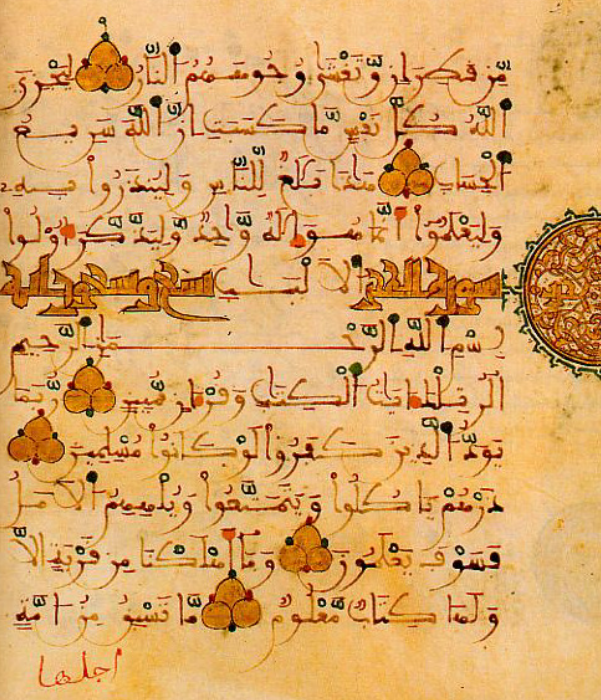 مِّن قَطِرَانٍ وَّتَغْشَىٰ وُجُوهَهُمُ النَّارُ لِيَجْزِيَ
اللَّهُ كُلَّ نَفْسٍ مَّا كَسَبَتْ إِنَّ اللَّهَ سَرِيعُ
الْحِسَابِ هَٰذَا بَلَٰغٌ لِّلنَّاسِ وَلِيُنذَرُوا بِهِ
وَلِيَعْلَمُوا أَنَّمَا هُوَ إِلَٰهٌ وَّاحِدٌ وَّلِيَذَّكَّرَ أُوْلُوا
سورة الحجر الْأَلْبَٰبِ تسع وتسعون اية
بِسْمِ اللَّهِ الرَّحْمَٰنِ الرَّحِيمِ
الٓر تِلْكَ ءَايَٰتُ الْكِتَٰبِ وَقُرْءَانٍ مُّبِينٍ رُّبَمَا
يَوَدُّ الَّذِينَ كَفَرُوا لَوْ كَانُوا مُسْلِمِينَ
ذَرْهُمْ يَاكُلُوا وَيَتَمَتَّعُوا وَيُلْهِهِمُ الْأَمَلُ
فَسَوْفَ يَعْلَمُونَ وَمَا أَهْلَكْنَا مِن قَرْيَةٍ إِلَّا
وَلَهَا كِتَابٌ مَّعْلُومٌ مَّا تَسْبِقُ مِنْ أُمَّةٍ
اجلها